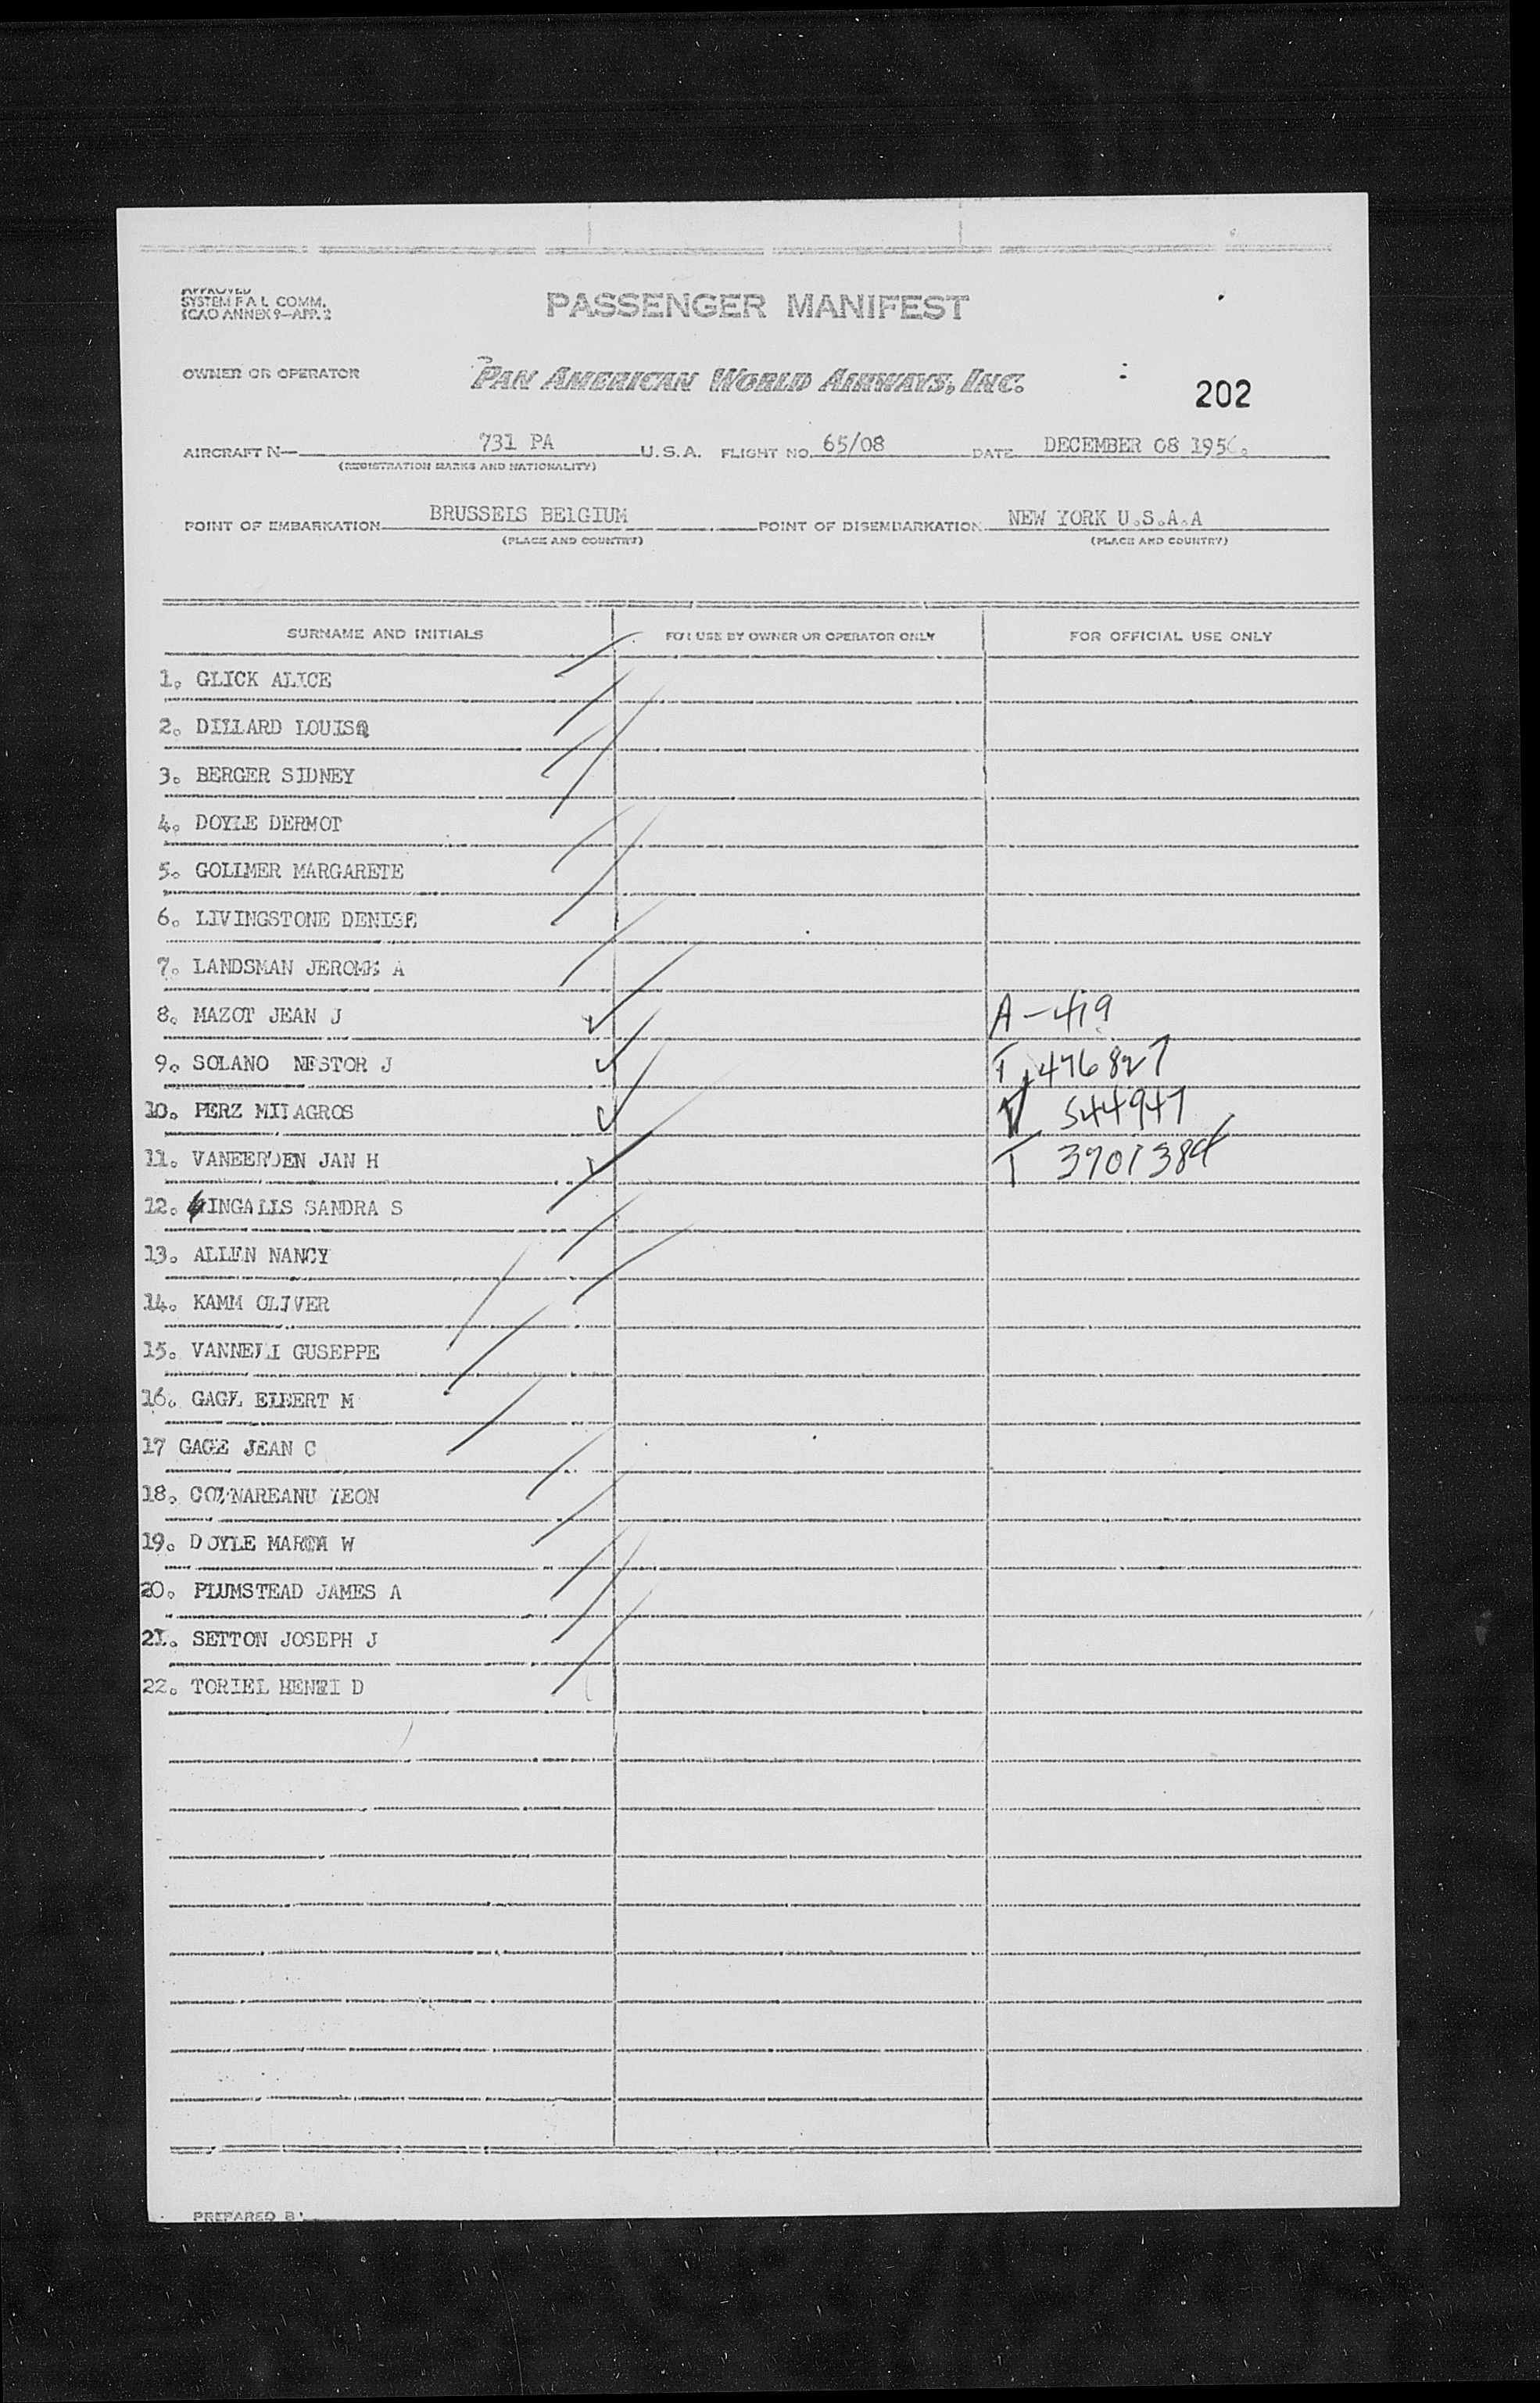 APPROVED
SYSTEM F A L COMM.
ICAO ANNEX 9-APP. 2
PASSENGER MANIFEST
OWNER OR OPERATOR PAN AMERICAN WORLD AIRWAYS, INC.
202
AIRCRAFT N- 731 PA U.S.A. FLIGHT NO. 65/08 DATE DECEMBER 08 1956.
(REGISTRATION MARKS AND NATIONALITY)
POINT OF EMBARKATION BRUSSELS BELGIUM POINT OF DISEMBARKATION NEW YORK U.S.A.A
(PLACE AND COUNTRY) (PLACE AND COUNTRY)
SURNAME AND INITIALS FOR USE BY OWNER OR OPERATOR ONLY FOR OFFICIAL USE ONLY
1. GLICK ALICE
2. DILLARD LOUISA
3. BERGER SIDNEY
4. DOYLE DERMOT
5. GOLLMER MARGARETE
6. LIVINGSTONE DENISE
7. LANDSMAN JEROME A
8. MAZOT JEAN J A-419
9. SOLANO NESTOR J T 476827
10. PERZ MILAGROS 544947
11. VANEERDEN JAN H T
12. INGALLS SANDRA S
13. ALLEN NANCY
14. KAMM OLIVER
15. VANNELLI GUSEPPE
16. GAGE ELBERT M
17 GAGE JEAN C
18. LEON
19. DOYLE W
20. PLUMSTEAD JAMES A
21. SETTON JOSEPH J
22. TORIEL HENRI D
PREPARED BY